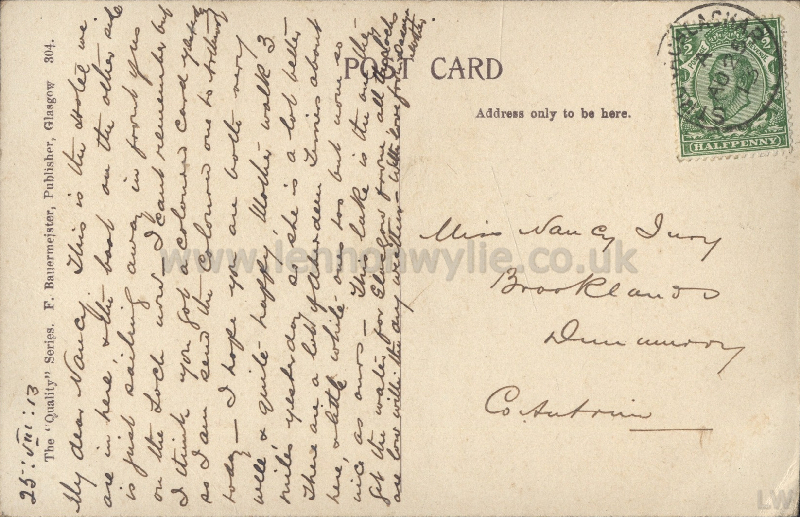 POST CARD
Address only to be here.
HALFPENNY
The "Quality" Series. F. Bauermeister, Publisher, Glasgow 304.
25:VIII:13
My dear Nancy. This is the Hotel we
are in here, & the boat on the other side
is just sailing away in front of us
on the Loch now – I can't remember but
I think you got a coloured card yesterday
so I am send the coloured one to
today – I hope you are both very
well & quite happy. Mother walk 3
miles yesterday so she is a lot better
There are a lot of Aberdeen Terriers about
here, & little white ones too but none so
nice as ours – This lake is the one they
get the water for Glasgow from, all the lochs
are low with the dry weather – With love from
Mother.
Miss Nancy Ivory
Brooklands
Dunmurry
Co. Antrim
www.lennonwylie.co.uk
LW